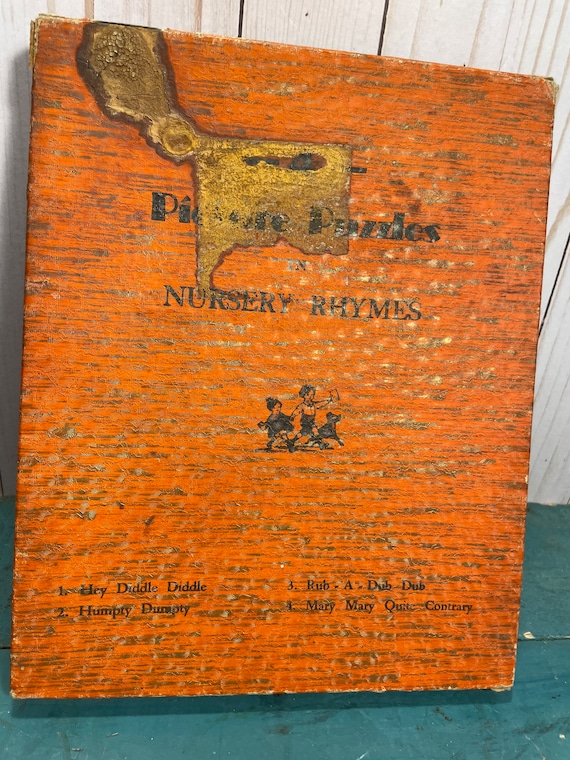 Picture Puzzles
IN
NURSERY RHYMES
1. Hey Diddle Diddle
2. Humpty Dumpty
3. Rub - A - Dub Dub
4. Mary Mary Quite Contrary